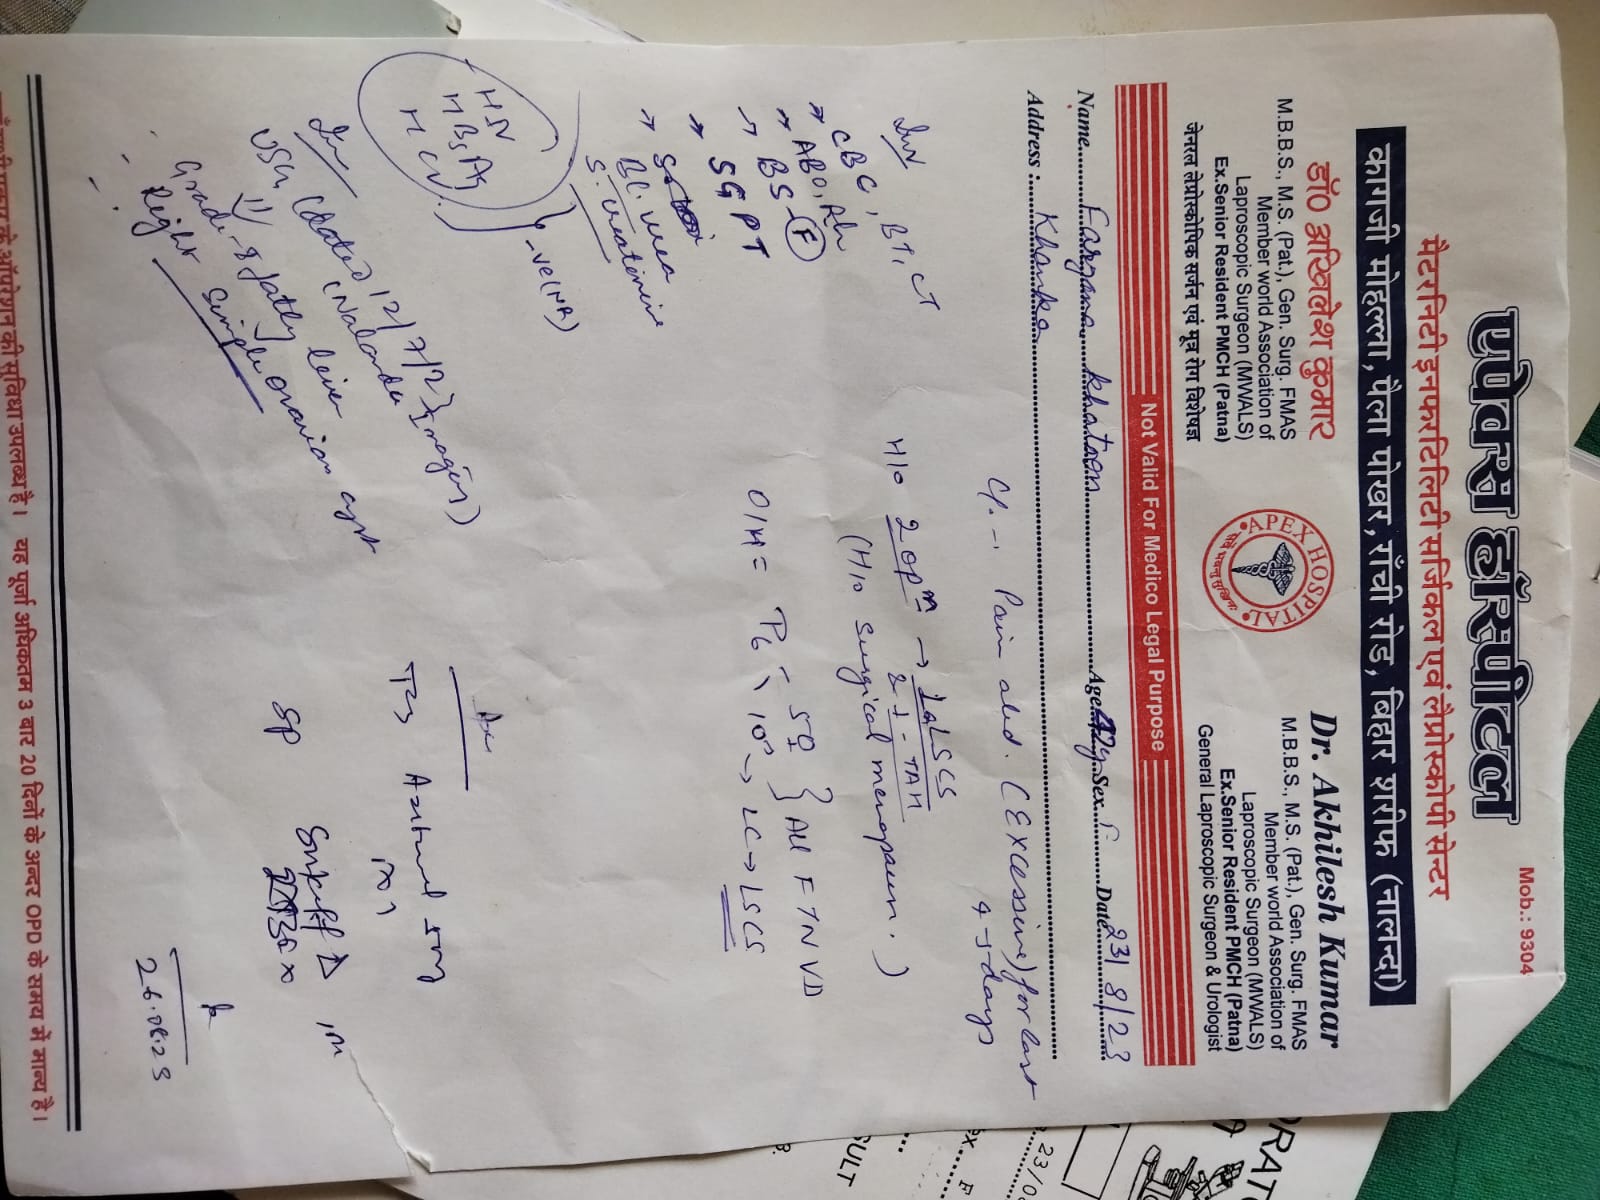 Mob.: 9304
एपेक्स हॉस्पीटल
मैटरनिटी इनफरटिलिटी सर्जिकल एवं लैप्रोस्कोपी सेन्टर
कागजी मोहल्ला, पैला पोखर, राँची रोड, बिहार शरीफ (नालन्दा)
डॉ० अखिलेश कुमार
M.B.B.S., M.S. (Pat.), Gen. Surg. FMAS
Member world Association of
Laproscopic Surgeon (MWALS)
Ex.Senior Resident PMCH (Patna)
जेनरल लेप्रोस्कोपिक सर्जन एवं मूत्र रोग विशेषज्ञ
APEX HOSPITAL
Dr. Akhilesh Kumar
M.B.B.S., M.S. (Pat.), Gen. Surg. FMAS
Member world Association of
Laproscopic Surgeon (MWALS)
Ex.Senior Resident PMCH (Patna)
General Laproscopic Surgeon & Urologist
Not Valid For Medico Legal Purpose
Name Fargana khatoon Age 42y Sex F Date 23/8/23
Address : Khanka
C/o -. Pain abd. (Excessive) for last
4-5 days
H/o 2 opn → 1st LSCS
2 - TAH
(H/o surgical menopause.)
O/H = P6 - 5♀ } All FTNVD
10 → LC → LSCS
Inv
→ CBC, BT, CT
→ ABO, Rh
→ BS-F
→ SGPT
→ Bl. urea
S. creatinine
HIV
HBsAg
HCV } -ve (NR)
USG (dated 12/7/23
(Nalanda Imaging)
⇒ Grade-I fatty liver
Right simple ovarian cyst
26.08.23
यह पूर्जा अधिकतम 3 बार 20 दिनों के अन्दर OPD के समय में मान्य है।
के ऑपरेशन की सुविधा उपलब्ध है।
23/0
F
SULT